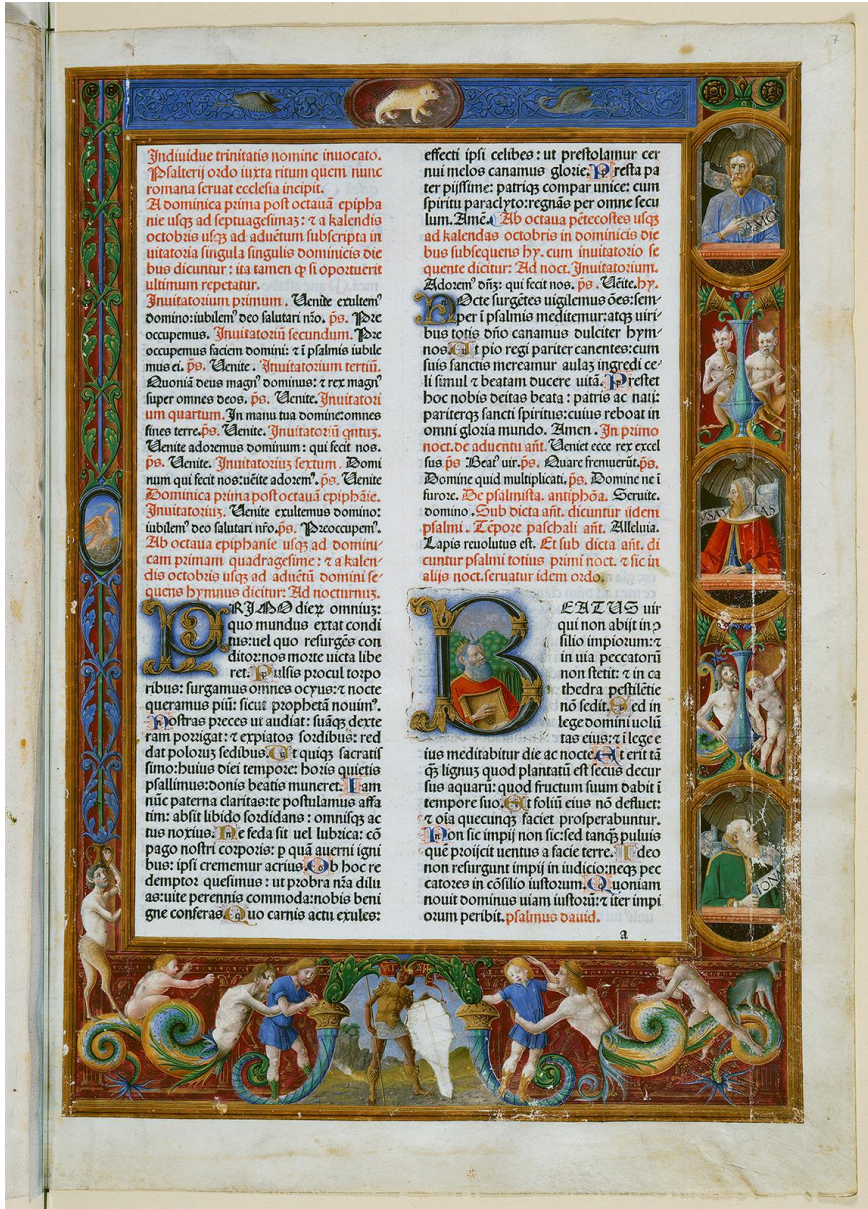 7
Indiuidue trinitatis nomine inuocato.
Psalterij ordo iuxta ritum quem nunc
romana seruat ecclesia incipit.
A dominica prima post octauā epipha
nie usqʒ ad septuagesimaʒ: ⁊ a kalendis
octobris usqʒ ad aduētum subscripta in
uitatoria singula singulis dominicis die
bus dicuntur: ita tamen ꝙ si oportuerit
ultimum repetatur.
Inuitatorium primum. Uenite exultemꝰ
domino: iubilemꝰ deo salutari nr̄o. p̄s. Pre
occupemus. Inuitatoriū secundum. Pre
occupemus faciem domini: ⁊ ī psalmis iubile
mus ei. p̄s. Uenite. Inuitatorium tertiū.
Quoniā deus magnꝰ dominus: ⁊ rex magnꝰ
super omnes deos. p̄s. Uenite. Inuitatori
um quartum. In manu tua domine: omnes
fines terre. p̄s. Uenite. Inuitatoriū qntuʒ.
Uenite adoremus dominum: qui fecit nos.
p̄s. Uenite. Inuitatoriuʒ sextum. Domi
num qui fecit nos: uēite adoremꝰ. p̄s. Uenite
Dominica prima post octauā epiphāie.
Inuitatoriuʒ. Uenite exultemus domino:
iubilemꝰ deo salutari nr̄o. p̄s. Preoccupemꝰ.
Ab octaua epiphanie usqʒ ad domini-
cam primam quadragesime: ⁊ a kalen-
dis octobris usqʒ ad aduētū domini se-
quens hymnus dicitur: Ad nocturnuʒ.
PRIMO dieʒ omniuʒ:
quo mundus extat condi
tus: uel quo resurgēs con
ditor: nos morte uicta libe
ret. Pulsis procul torpo
ribus: surgamus omnes ocyus: ⁊ nocte
queramus piū: sicut prophetā nouimꝰ.
Nostras preces ut audiat: suāqʒ dexte
ram porrigat: ⁊ expiatos sordibus: red
dat poloruʒ sedibus. Ut quiqʒ sacratis
simo: huius diei tempore: horis quietis
psallimus: donis beatis muneret. Iam
nūc paterna claritas: te postulamus affa
tim: absit libido sordidans: omnisqʒ ac
tus noxius. Ne feda sit uel lubrica: cō
pago nostri corporis: p quā auerni igni
bus: ipsi crememur acrius. Ob hoc re
demptor quesimus: ut probra nr̄a dilu
as: uite perennis commoda: nobis beni
gne conferas. Quo carnis actu exules:
effecti ipsi celibes: ut prestolamur cer
nui melos canamus glorie. Presta pa
ter pijssime: patriqʒ compar unice: cum
spiritu paraclyto: regnās per omne secu
lum. Amē. Ab octaua pētecostes usqʒ
ad kalendas octobris in dominicis die
bus subsequens hy. cum inuitatorio se
quente dicitur: Ad noct. Inuitatorium.
Adoremꝰ dn̄ʒ: qui fecit nos. p̄s. Uēite. hy.
Nocte surgētes uigilemus ōes: sem-
per ī psalmis meditemur: atqʒ uiri
bus totis dn̄o canamus dulciter hym-
nos. Ut pio regi pariter canentes: cum
suis sanctis mereamur aulaʒ ingredi ce-
li simul ⁊ beatam ducere uitā. Prestet
hoc nobis deitas beata: patris ac nati:
pariterqʒ sancti spiritus: cuius reboat in
omni gloria mundo. Amen. In primo
noct. de aduentu an̄t. Ueniet ecce rex excel
sus p̄s Beatꝰ uir. p̄s. Quare fremuerūt. p̄s.
Domine quid multiplicati. p̄s. Domine ne ī
furore. De psalmista. antiphōa. Seruite.
domino. Sub dicta an̄t. dicuntur ijdem
psalmi. Tēpore paschali an̄t. Alleluia.
Lapis reuolutus est. Et sub dicta an̄t. di
cuntur psalmi totius primi noct. ⁊ sic in
alijs noct. seruatur idem ordo.
BEATUS uir
qui non abijt in ↄ
silio impiorum: ⁊
in uia peccatorū
non stetit: ⁊ in ca
thedra pestilētie
nō sedit. Sed in
lege domini uolū
tas eius: ⁊ ī lege e
ius meditabitur die ac nocte. Et erit tā
ꝗ̄ʒ lignuʒ quod plantatū est secus decur
sus aquarū: quod fructum suum dabit ī
tempore suo. Et foliū eius nō defluet:
⁊ oīa quecunqʒ faciet prosperabuntur.
Non sic impij non sic: sed tanqʒ puluis
quē proijcit uentus a facie terre. Ideo
non resurgunt impij in iudicio: neqʒ pec
catores in cōsilio iustorum. Quoniam
nouit dominus uiam iustorū: ⁊ iter impi
orum peribit. psalmus dauid.
a
YSAY AS